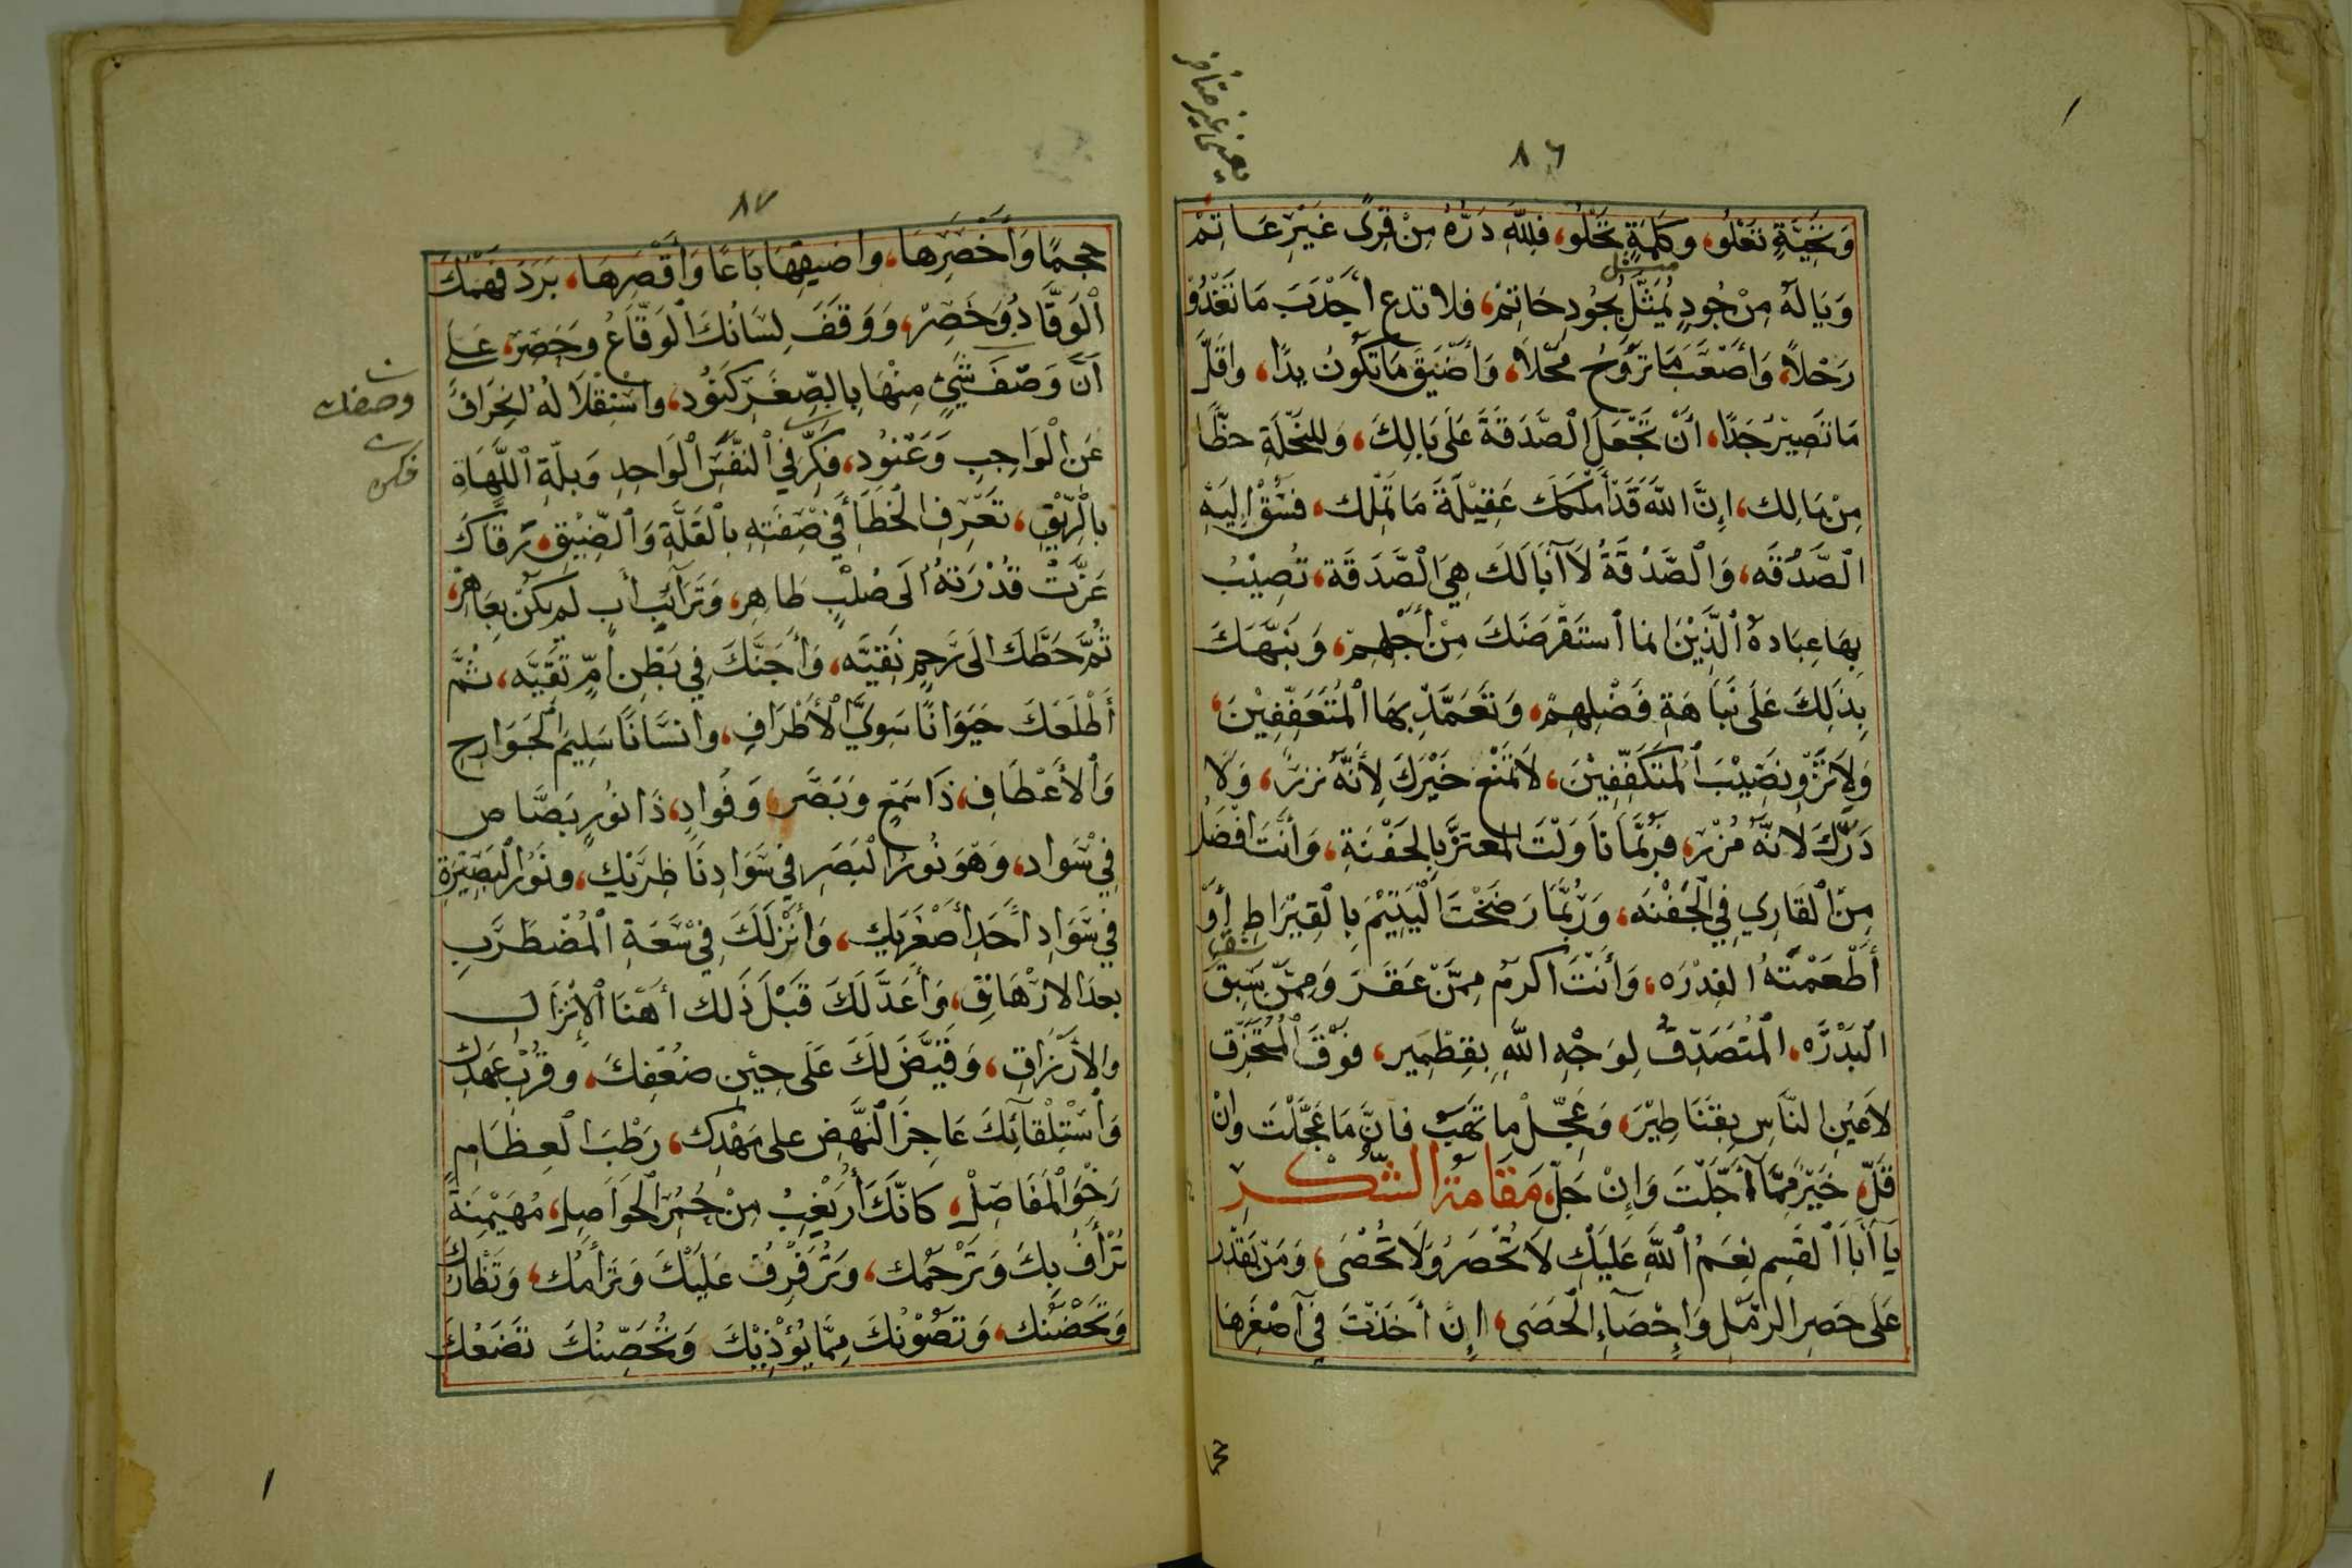 ٨٦
يعنى غير متأخر
وَتَحِيَّةٍ تَعْلُو، وَكَلِمَةٍ تَحْلُو، فَلِلّٰهِ دَرُّهُ مِنْ قِرًى غَيْرِ عَاتِمْ
وَيَا لَهُ مِنْ جُودٍ يُمَثَّلُ بِجُودِ حَاتِمْ، فلا تدع أَجْدَبَ مَا تَغْدُوْ
رَحْلاً، وَأَصْعَبَ مَا تَرُوحُ مَحْلاً، وَأَضْيَقَ مَا تَكُونُ يدًا، وَاقَلَّ
مَا تَصِيْرُ جَدًا، أَنْ تَجْعَلَ الصَّدَقَةَ عَلَى بَالِكَ، وَلِلنِّحْلَةِ حظًّا
مِنْ مَالِك، اِنَّ اللهَ قَدْ أَمْلَكَكَ عَقِيْلَةَ مَا تَمْلِك، فَسُقْ إِلَيْهِ
الصَّدُقَه، وَالصَّدُقَةُ لَا أَبَا لَكَ هِيَ الصَّدَقَة، تُصِيْبُ
بِهَا عِبَادَهُ الَّذِيْنَ انما اسْتَقْرَضَكَ مِنْ أَجْلِهِمْ، وَنَبَّهَكَ
بِذَلِكَ عَلَى نَبَاهَةِ فَضْلِهِمْ، وَتَعَمَّدْ بِهَا الْمُتَعَفِّفِيْنَ،
وَلاَ تَزْوِ نَصِيْبَ الْمُتَكَفِّفِيْنَ، لاَ تَمْنَعْ خَيْرَكَ لِأَنَّهُ نزر، وَلَا
دَرَّكَ لأَنَّهُ مُزْر، فَرُبَّمَا نَاوَلْتَ المعترَّ بِالحَفْنَةِ، وَأَنْتَ افْضَلُ
مِنَ الْقَارِي فِي الْجَفْنَه، وَرُبَّمَا رَضَخْتَ الْيَتِيْمَ بِالْقِيْرَاطِ أَوْ
أَطْعَمْتَهُ الفِدْرَه، وَأَنْتَ اكرم مِمَّنْ عَقَرَ وَمِمَّنْ سَبَقَ
الْبَدْرَه، الْمُتَصَدِّقُ لِوَجْهِ اللهِ بِقِطْمِير، فَوْقَ الْمُتَخَرِّقِ
لِأَعْيُنِ النَّاسِ بِقَنَاطِيْرَ، وَعَجِّلْ ما تَهَبْ فَانَّ مَا عَجَّلْتَ وانْ
قَلَّ خَيْرٌ مِمَّا أَجَّلْتَ وَإِنْ جَلَّ، مَقَامَةُ الشُّكْرِ
يَا أَبَا القٰسِم نِعَمُ اللهِ عَلَيْكَ لَا تُحْصَرُ وَلَا تُحْصَى، وَمَنْ يَقْدِر
عَلَى حَصرِ الرَّمْلِ وَإِحْصَاءِ الْحَصَى، إِنْ أَخَذْتَ فِي أَصْغَرِهَا
٨٧
حجمًا وَأَخْصَرِهَا، وَاضيقِهَا بَاعًا وَأَقْصَرِهَا، بَرَدَ فَهْمُكَ
الْوَقَّادُ وَخَصِرْ، وَوَقَفَ لِسَانُكَ الوَقَّاعُ وَحَصِرَ، عَلَى
أَنَّ وَصْفَ شَيْءٍ مِنْهَا بِالصِّغَرِ كَنُوْد، وَاسْتِقْلَالَهُ انْحِرَافٌ
عَنِ الْوَاجِبِ وَعُنُود، فَكِّرْ فِي النَّفَسِ الْوَاحِدِ وَبِلَّةِ اللَّهَاةِ
بِالرِّيْقِ، تَعْرِفِ الْخَطَأَ فِي صِفَتِهِ بِالْقِلَّةِ وَالضِّيْقِ، رَقَّاكَ
عَزَّتْ قُدْرَتُهُ الَى صُلْبٍ طَاهِر، وَتَرَائِبِ أَبٍ لَمْ يَكُنْ بِعَاهِرْ،
ثُمَّ حَطَّكَ الَى رَحِمٍ نَقِيَّه، وَأَجَنَّكَ فِي بَطْنِ أُمٍّ تَقِيَّه، ثُمَّ
أَطْلَعَكَ حَيَوَانًا سَوِيَّ الْأَطْرَافِ، وَانْسَانًا سَلِيمَ الْجَوَارِحِ
وَالْأَعْطَافِ، ذَا سَمْعٍ وَبَصَر، وَفُوَادٍ، ذَا نُورٍ بَصَّاص
فِي سَوَاد، وَهُوَ نُورُ الْبَصَرِ فِي سَوَادِ نَاظِرَيْكِ، وَنُورُ الْبَصِيْرَةِ
فِي سَوَادِ أَحَدِ أَصْغَرَيْكَ، وَأَنْزَلَكَ فِي سَعَةِ الْمُضْطَرَبِ
بعدَ الارْهَاقِ، وَأَعَدَّ لَكَ قَبْلَ ذَلك أَهْنَا الْإِنْزَالِ
وَالْأَرْزَاقِ، وَقَيَّضَ لَكَ عَلَى حِيْنِ ضُعْفِكَ، وَقُرْبِ عَهْدِك
وَاسْتِلْقَائِكَ عَاجِزَ النَّهْضِ على مَهْدِك، رَطْبَ الْعِظَامِ
رَخْوَ الْمَفَاصِل، كَانَّكَ أُزَيْغِبُ مِنْ حُمْرِ الْحَوَاصِل، مُهَيْمِنَةً
تَرْأَفُ بِكَ وَتَرْحَمُك، وَتُرَفْرِفُ عَلَيْكَ وَتَرْأَمُك، وَتَظْأرك
وَتَحْضُنُك، وَتَصُوْنُكَ مِمَّا يُؤْذِيْكَ وَتُحَصِّنُكَ تَضَعُكَ
وصفك
فكر